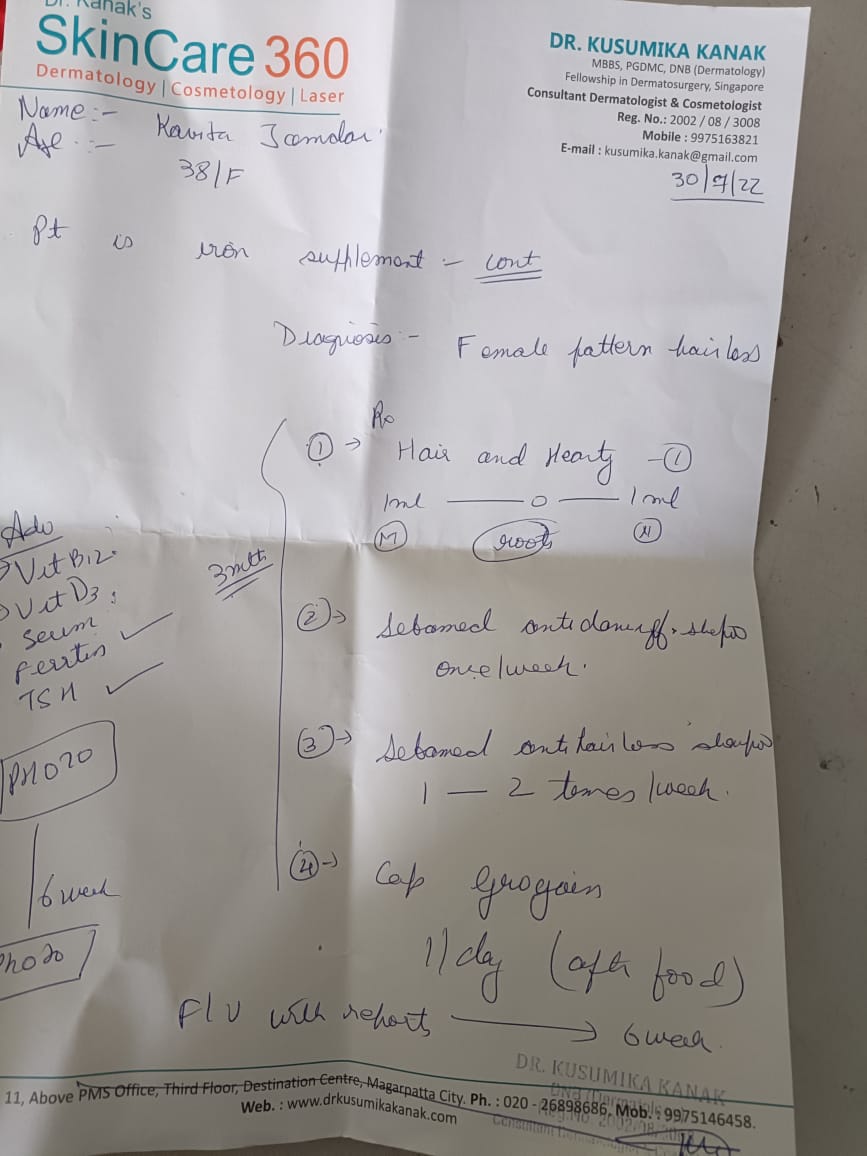 Dr. Kanak's
SkinCare 360
Dermatology | Cosmetology | Laser
DR. KUSUMIKA KANAK
MBBS, PGDMC, DNB (Dermatology)
Fellowship in Dermatosurgery, Singapore
Consultant Dermatologist & Cosmetologist
Reg. No.: 2002 / 08 / 3008
Mobile : 9975163821
E-mail : kusumika.kanak@gmail.com
Name :- Kavita Jamdar
Age :-
38/F
30/9/22
Pt is iron supplement - cont
Diagnosis :- Female pattern hair loss
Rx
① → Hair and Hearty - ①
1ml — 0 — 1ml
M roots N
Adv
Vit B12
Vit D3
Serum
Ferritin ✓
TSH ✓
PHOTO
6 week
Photo
3 mth
② → Sebamed anti danruff shapoo
once/week.
③ → Sebamed anti hair loss shampoo
1 — 2 times/week.
④ → Cap Grogain
1/day (after food)
F/U with reports → 6 week.
DR. KUSUMIKA KANAK
11, Above PMS Office, Third Floor, Destination Centre, Magarpatta City. Ph. : 020 - 26898686, Mob. : 9975146458.
Web. : www.drkusumikakanak.com